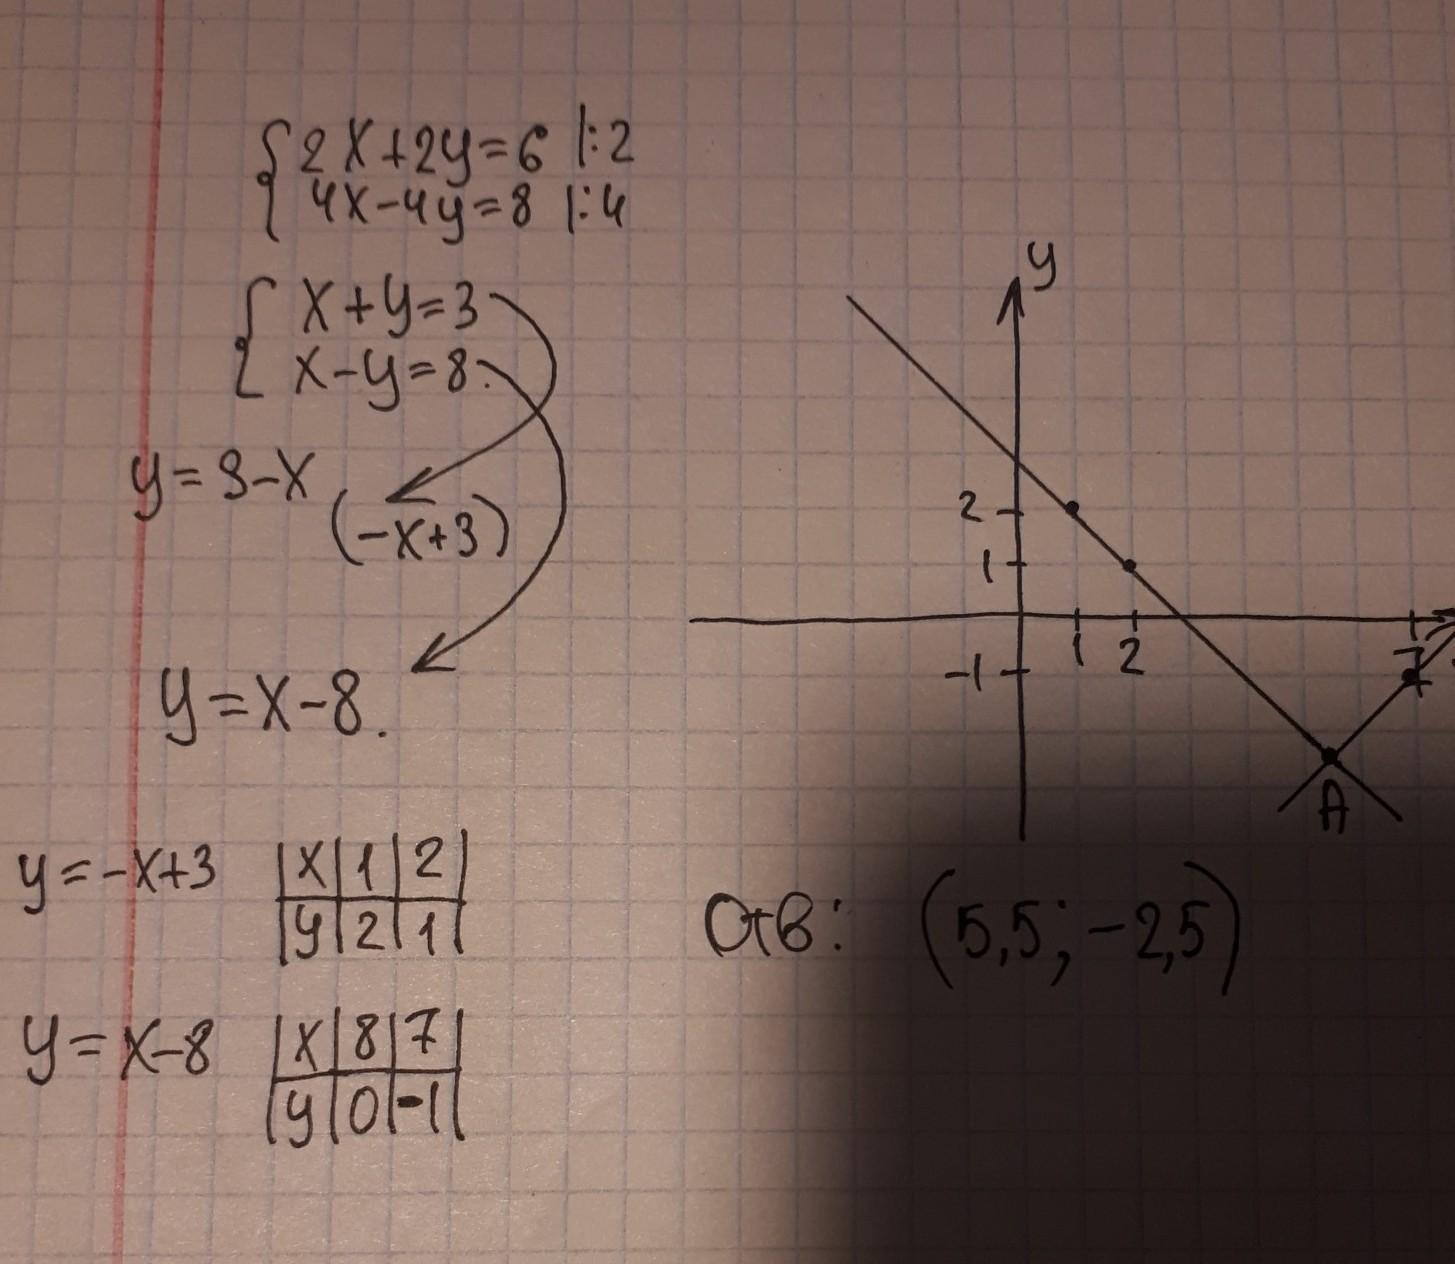 {2x+2y=6 |:2
4x-4y=8 |:4
{x+y=3
x-y=8.
y=3-x
(-x+3)
y=x-8.
y=-x+3 |x|1|2|
|y|2|1|
y=x-8 |x|8|7|
|y|0|-1|
y
2
1
-1
1 2 7
A
Отв: (5,5; -2,5)